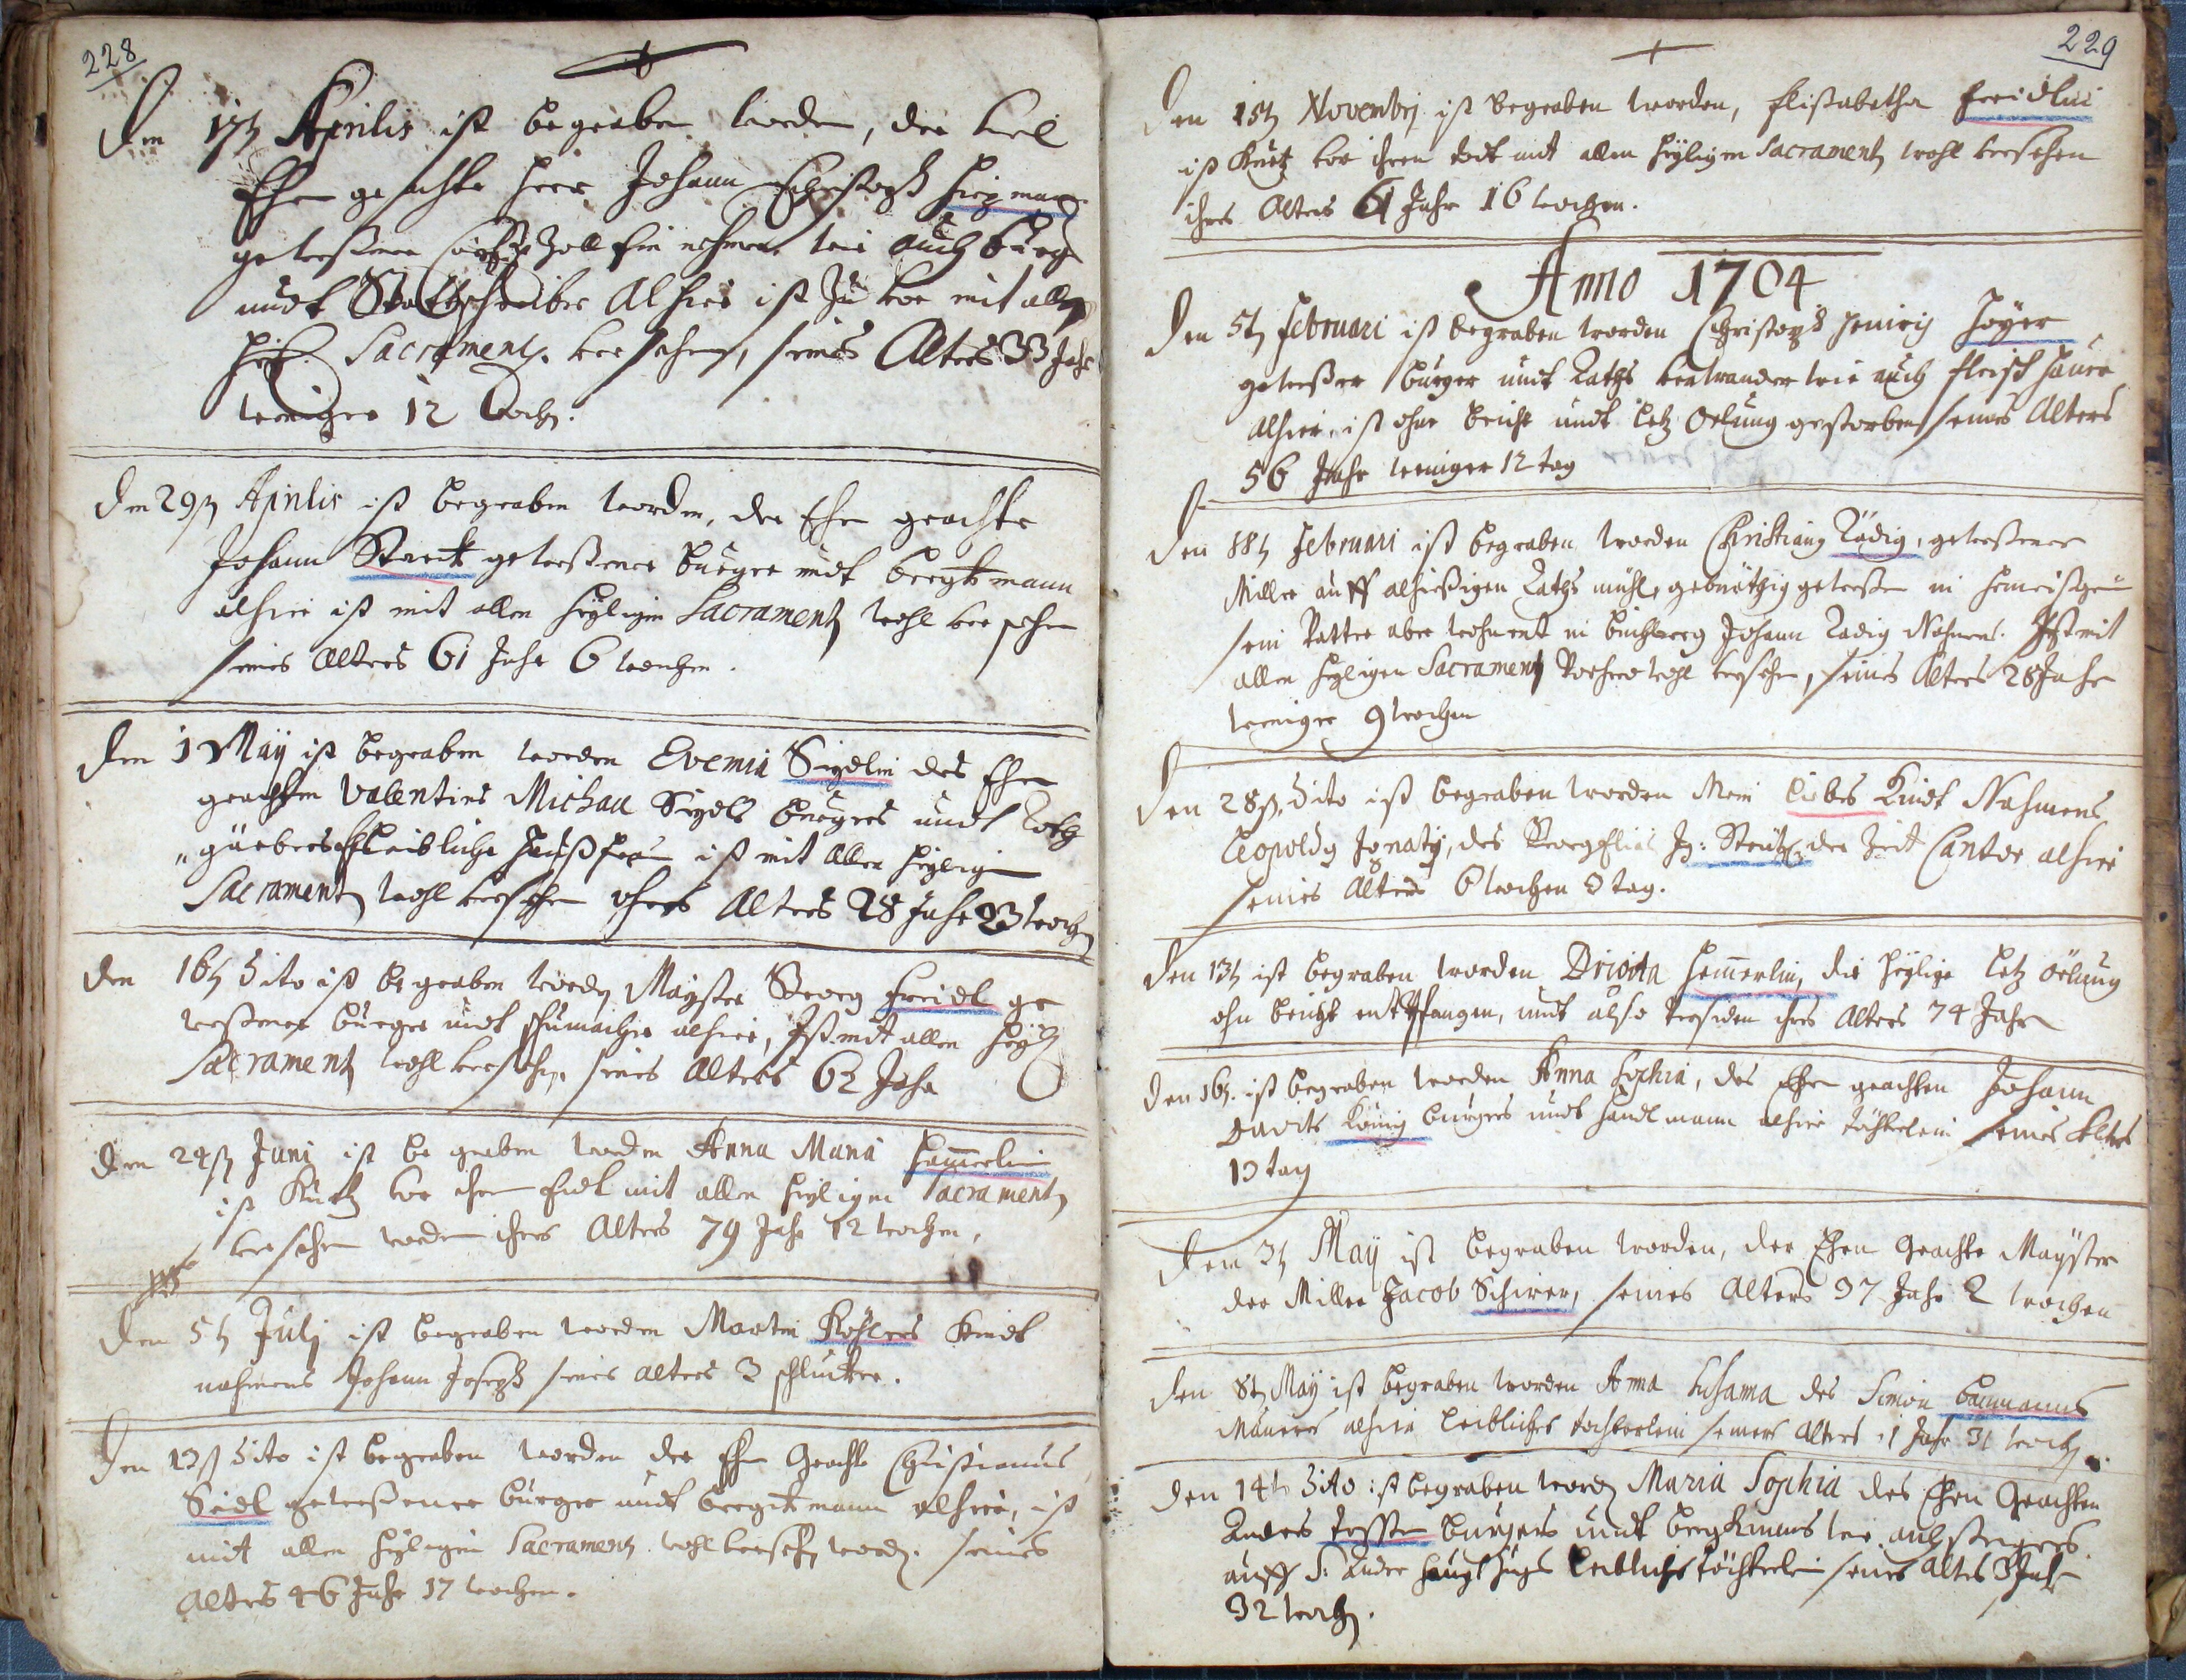 228
Den 17t Aprilis ist begraben worden, der wol
Ehren geachte Herr Johann Christoph
geweßener Zoll Einnehmer wie auch burg
undt Stattschreiber Alhier ist zu vor mit allen
Heyl. Sacrament. versehen, seines Alters 33 Jahr
weniger 12 Woch.
Den 29st Aprilis ist begraben worden, der Ehren geachte
Johann Starck geweßener burger undt bergkmann
alhier ist mit allen heyligen Sacrament wohl versehen
seines Alters 61 Jahr 6 wochen.
Den 1 May ist begraben worden Evemia Sigdlin des Ehren
geachten Valentins Michaa Sigdls burgers undt Roth
gärbers Eheleibliche Haußfrau ist mit allen heyligen
Sacrament wohl versehen ihres Alters 28 Jahr 23 woch
Den 16t dito ist begraben worden Mayster Georg Freidl ge
weßener burger undt schumacher alhier, Ist mit allen heyl
Sacrament wohl versehen. seines Alters 62 Jahr
Den 24st Juni ist begraben worden Anna Maria Hammerlin
ist Kurtz vor ihrem Endt mit allen heyligen Sacrament
versehen worden ihres Alters 79 Jahr 12 wochen,
Den 5t Julj ist begraben worden Martin Köhlers Kindt
nahmens Johann Joseph seines alters 3
Den 13st dito ist begraben worden der Ehren Geachte Christianus
Sidl geweßener burger undt bergkmann alhier, ist
mit allen heyligen Sacrament wohl versehen word. seines
Alters 46 Jahr 17 wochen.
229
Den 15t Novembrj ist begraben worden, Elisabetha Freidlin
ist Kurtz vor ihren todt mit allen heyligen Sacrament wohl versehen
ihres Alters 61 Jahr 16 wochen.
Anno 1704
Den 5t Februari ist begraben worden Christoph Henrich Hoyer
geweßner burger undt Raths verwander wie auch fleisch hauer
Alhier, ist ohne beicht undt letz Oelung gestorben seines Alters
56 Jahr weniger 12 tag
Den 18t Februari ist begraben worden Christiany Rädig, geweßener
Miller auff alhießigen Raths mühl, geweßen in
sein Vatter aber wohnent in Buchberg Johann Radig Nahmens. Ist mit
allen heyligen Sacrament Vorhero wohl versehen, seines Alters 28 Jahr
weniger 9 wochen
Den 28st. dito ist begraben worden Mein liebes Kindt Nahmens
Leopoldy Ignaty, des Georg Elias der Zeit Cantor alhier
seines Alters 6 wochen 3 tag.
Den 13t ist begraben worden Driota Hemerlin, die heylige letz öelung
ohn beicht entpfangen, undt also verschiden ihres Alters 74 Jahr
Den 16t. ist begraben worden Anna Sophia, des Ehren geachten Johann
Davits König burgers undt handlmann alhier töchterlein seines Alters
13 tag
Den 3t May ist begraben worden, der Ehren Geachte Mayster
der Miller Jacob Schirer, seines Alters 37 Jahr 2 wochen
Den 8t May ist begraben worden Anna Susanna des Simon Baumanns
Maurers alhier leibliches tochterlein seiners Alters 1 Jahr 31 woch.
Den 14t dito ist begraben word Maria Sophia des Ehren Geachten
burgers undt bergkmans wie auch steigers
auff S: leibliches töchterlein seines Alters 3 Jahr
32 woch.